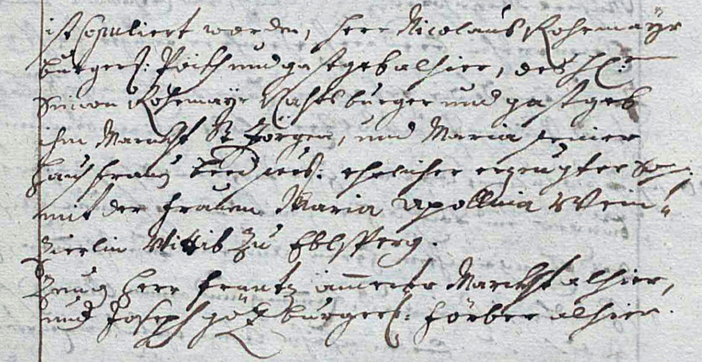 ist copuliert worden, Herr Nicolaus Rosmayr
burgerl: und gastgeb alhier, des H:
Simon Rosmayr Rahtsburger und gastgeb
im Marckht St. Jörgen, und Maria seiner
haus frauen beed seel: ehelicher erzeugter Sohn:
mit der frauen Maria Apollonia Wein¬
zierlin Wittib zu Eblsperg.
Zeug Herr frantz Marckht alhier,
und Joseph göz burgerl: förber alhier.